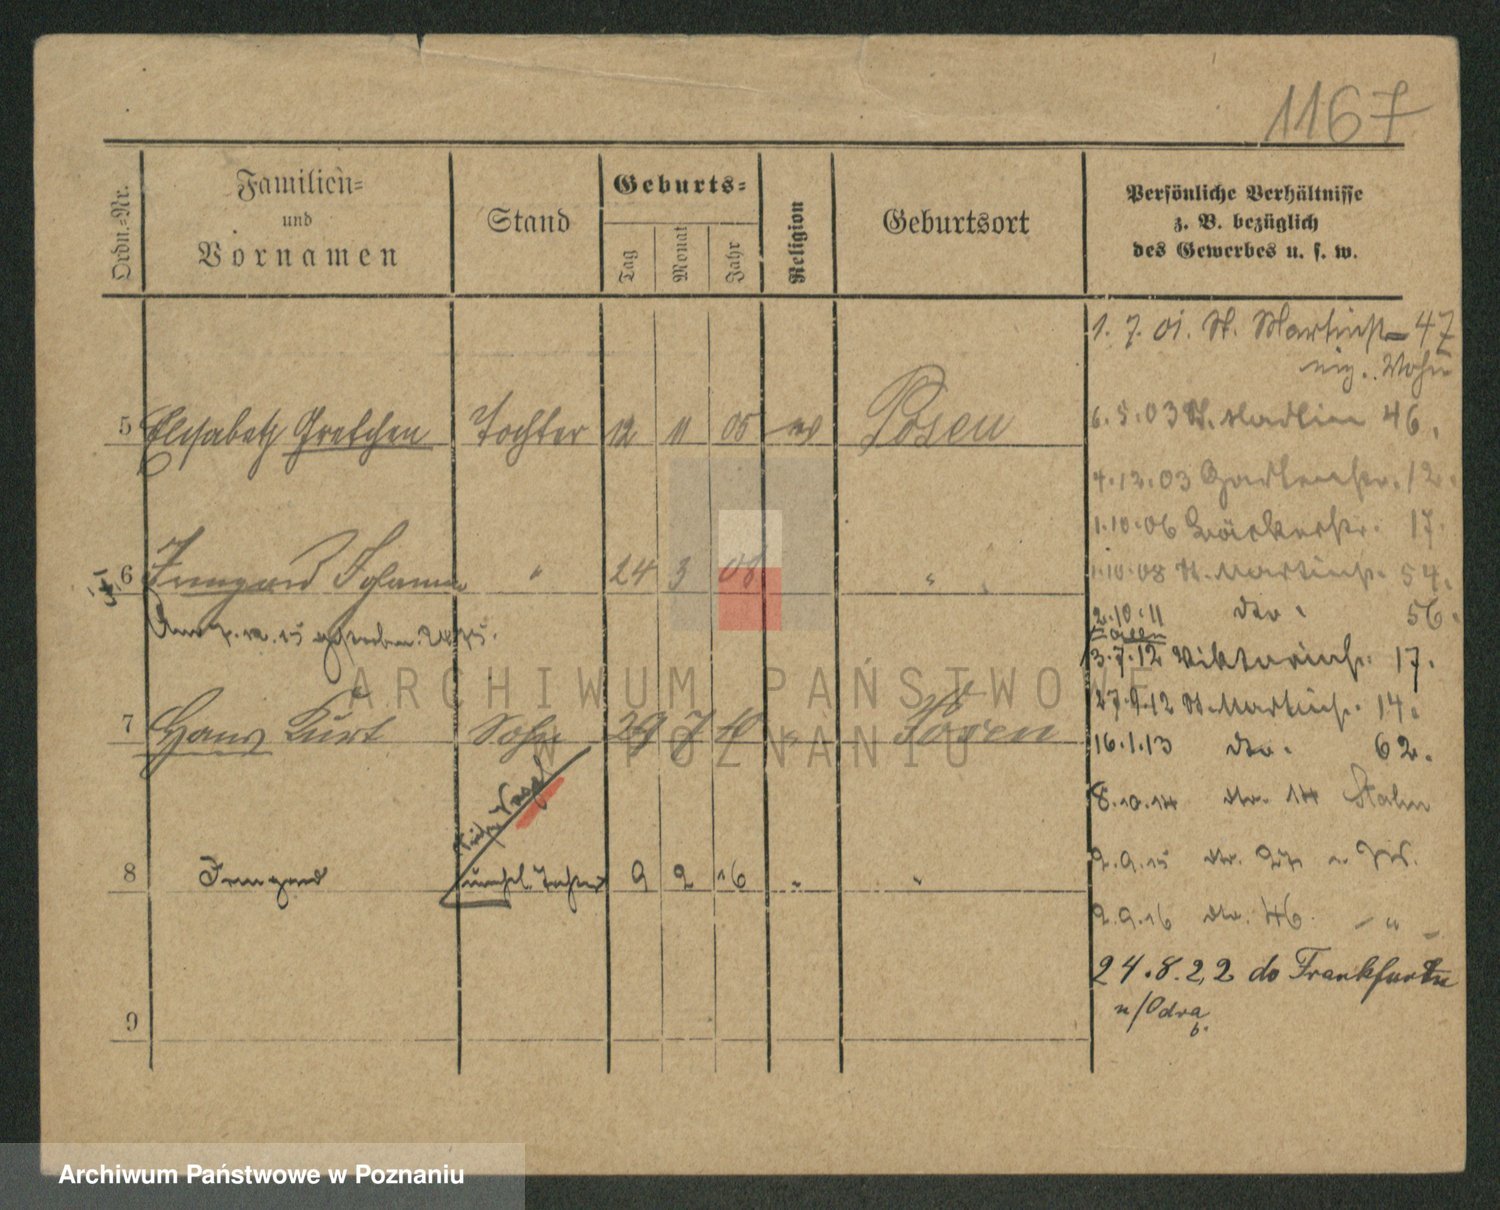 1167
Ordn.-Nr.
Familien-
und
Vornamen
Stand
Geburts-
Tag
Monat
Jahr
Religion
Geburtsort
Persönliche Verhältnisse
z. B. bezüglich
des Gewerbes u. s. w.
5 Elisabeth Gretchen Tochter 12 11 05 ev Posen
6 Irmgard Johanna " 24 3 08 "
7 Hans Kurt Sohn 29 7 10 " Posen
8 Irmgard unehel. Tochter 9 2 16 " "
9
1. 7. 01. St. Martinstr 47
Wohn
6.5.03 St. Martin 46.
4.12.03 Gartenstr. 12.
1.10.06 Bäckerstr. 17.
1.10.08 St. Martinstr. 54.
2.10.11 dto. 56.
3.7.12 Viktoriastr. 17.
27.9.12 St. Martinstr. 14.
16.1.13 dto. 62.
8.10.14 dto. 14
2.9.15 dto. 27
2.9.16 dto. 46. "
24.8.22 do Frankfurtu
n/Odra
b.
ARCHIWUM PAŃSTWOWE
W POZNANIU
Archiwum Państwowe w Poznaniu